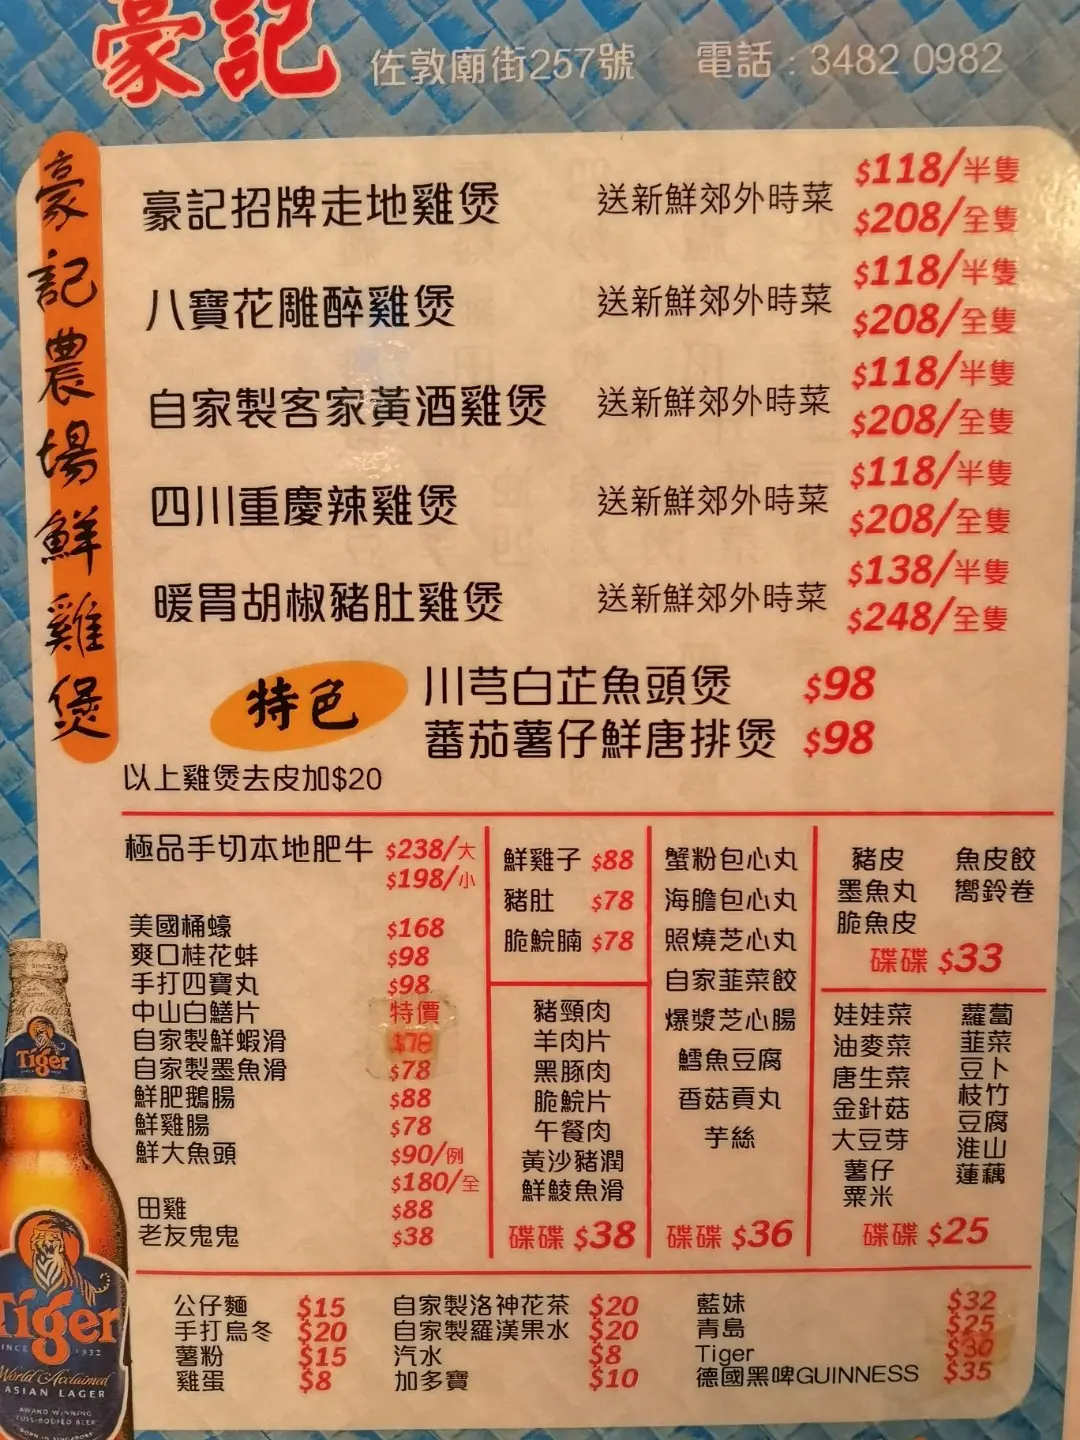 豪記 佐敦廟街257號 電話：3482 0982
豪記農場鮮雞煲
豪記招牌走地雞煲 送新鮮郊外時菜 $118/半隻
$208/全隻
八寶花雕醉雞煲 送新鮮郊外時菜 $118/半隻
$208/全隻
自家製客家黃酒雞煲 送新鮮郊外時菜 $118/半隻
$208/全隻
四川重慶辣雞煲 送新鮮郊外時菜 $118/半隻
$208/全隻
暖胃胡椒豬肚雞煲 送新鮮郊外時菜 $138/半隻
$248/全隻
特色
川芎白芷魚頭煲 $98
蕃茄薯仔鮮唐排煲 $98
以上雞煲去皮加$20
極品手切本地肥牛 $238/大
$198/小
美國桶蠔 $168
爽口桂花蚌 $98
手打四寶丸 $98
中山白鱔片 特價
自家製鮮蝦滑 $78
自家製墨魚滑 $78
鮮肥鵝腸 $88
鮮雞腸 $78
鮮大魚頭 $90/例
$180/全
田雞 $88
老友鬼鬼 $38
鮮雞子 $88
豬肚 $78
脆鯇腩 $78
豬頸肉
羊肉片
黑豚肉
脆鯇片
午餐肉
黃沙豬潤
鮮鯪魚滑
碟碟 $38
蟹粉包心丸
海膽包心丸
照燒芝心丸
自家韮菜餃
爆漿芝心腸
鱈魚豆腐
香菇貢丸
芋絲
碟碟 $36
豬皮 魚皮餃
墨魚丸 嚮鈴卷
脆魚皮
碟碟 $33
娃娃菜 蘿蔔
油麥菜 韮菜
唐生菜 豆卜
金針菇 枝竹
大豆芽 豆腐
薯仔 淮山
粟米 蓮藕
碟碟 $25
公仔麵 $15
手打烏冬 $20
薯粉 $15
雞蛋 $8
自家製洛神花茶 $20
自家製羅漢果水 $20
汽水 $8
加多寶 $10
藍妹 $32
青島 $25
Tiger $30
德國黑啤GUINNESS $35
Tiger
Tiger
SINCE 1932
World Acclaimed
ASIAN LAGER
AWARD WINNING
FULL-BODIED BEER
BORN IN SINGAPORE